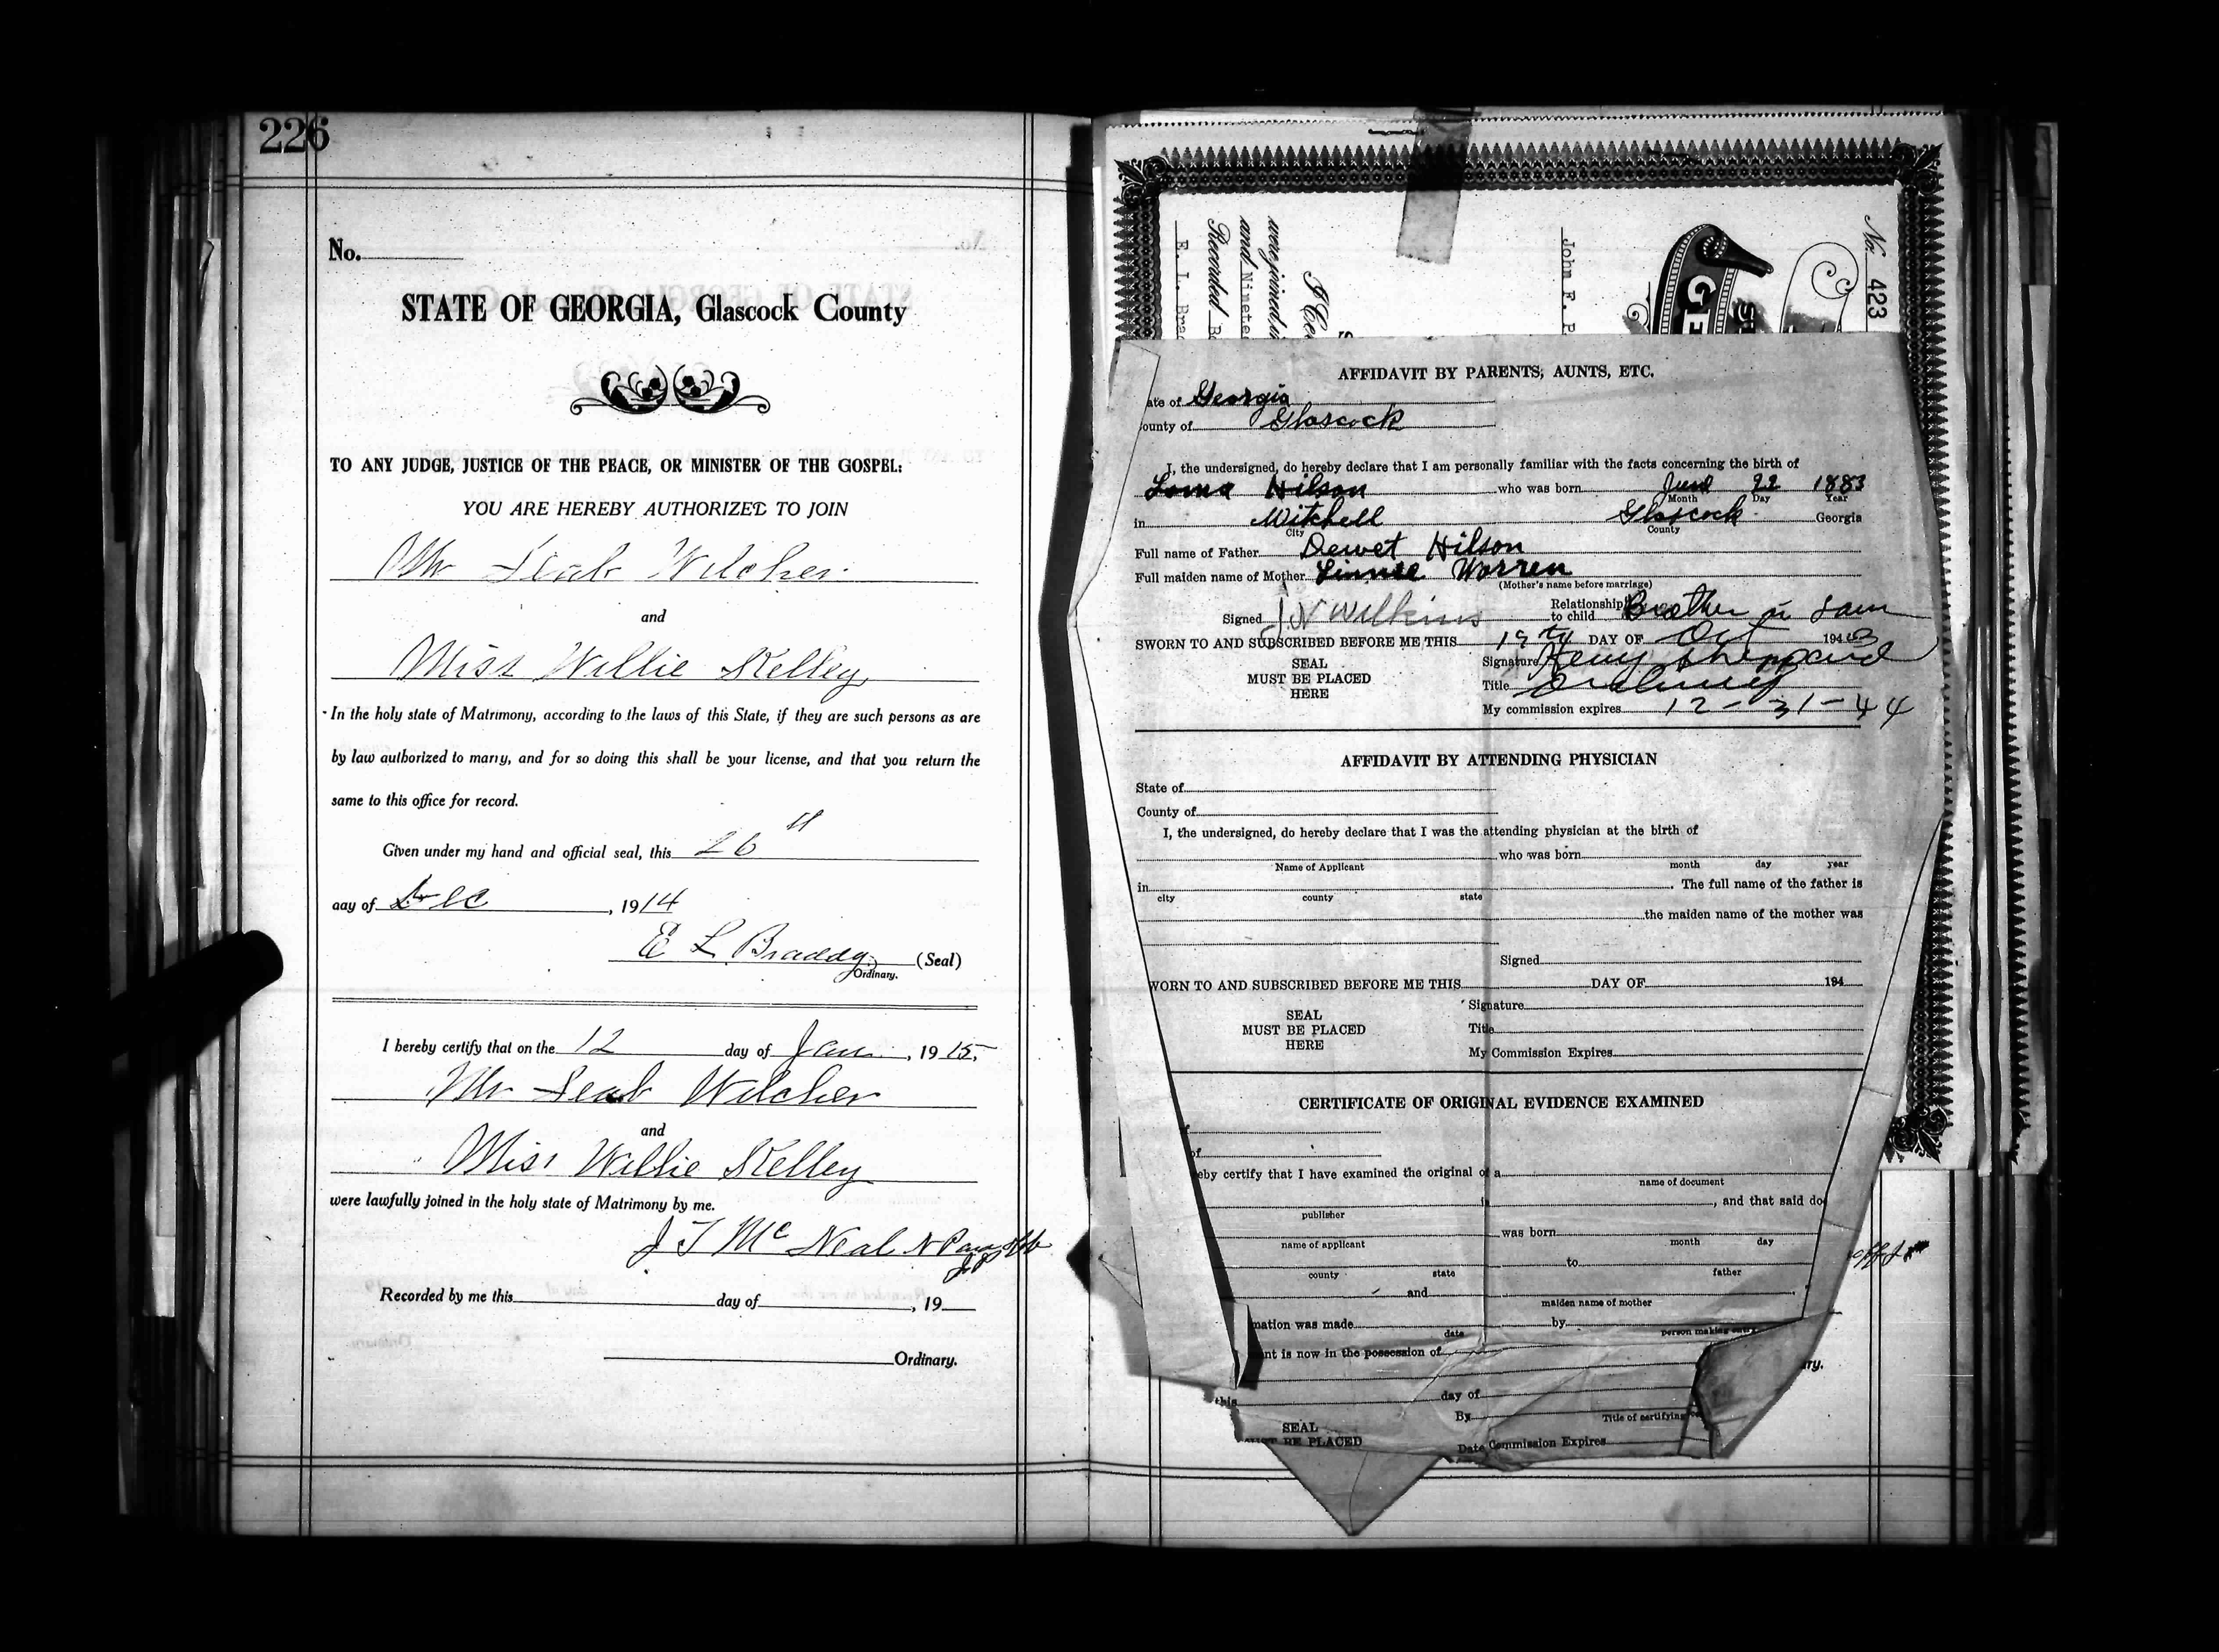 226
No.
STATE OF GEORGIA, Glascock County
TO ANY JUDGE, JUSTICE OF THE PEACE, OR MINISTER OF THE GOSPEL:
YOU ARE HEREBY AUTHORIZED TO JOIN
Mr Seab Wilcher
and
Miss Willie Kelley
In the holy state of Matrimony, according to the laws of this State, if they are such persons as are
by law authorized to marry, and for so doing this shall be your license, and that you return the
same to this office for record.
Given under my hand and official seal, this 26th
day of Dec, 1914
E L Braddy (Seal)
Ordinary.
I hereby certify that on the 12 day of Jan, 1915,
Mr Seab Wilcher
and
Miss Willie Kelley
were lawfully joined in the holy state of Matrimony by me.
J T McNeal N P
J P
Recorded by me this day of , 19
Ordinary.
No. 423
John F. P
I Cer
were joined in
and Ninete
Recorded B
E. L. Brad
AFFIDAVIT BY PARENTS, AUNTS, ETC.
ate of Georgia
ounty of Glascock
I, the undersigned, do hereby declare that I am personally familiar with the facts concerning the birth of
Loma Hilson who was born June 22 1883
Month Day Year
in Mitchell Glascock Georgia
City County
Full name of Father Dewet Hilson
Full maiden name of Mother Linnie Warren
(Mother's name before marriage)
Signed J N Wilkins Relationship to child Brother in Law
SWORN TO AND SUBSCRIBED BEFORE ME THIS 19th DAY OF Oct 1943
SEAL
MUST BE PLACED
HERE
Signature Henry Sheppard
Title Ordinary
My commission expires 12-31-44
AFFIDAVIT BY ATTENDING PHYSICIAN
State of
County of
I, the undersigned, do hereby declare that I was the attending physician at the birth of
who was born
Name of Applicant month day year
in . The full name of the father is
city county state
the maiden name of the mother was
Signed
WORN TO AND SUBSCRIBED BEFORE ME THIS DAY OF 194
SEAL
MUST BE PLACED
HERE
Signature
Title
My Commission Expires
CERTIFICATE OF ORIGINAL EVIDENCE EXAMINED
of
eby certify that I have examined the original of a
name of document
, and that said do
publisher
was born
name of applicant month day
to
county state father
and
maiden name of mother
mation was made by
date person making entry
nt is now in the possession of
this day of
By
Title of certifying
SEAL
MUST BE PLACED
Date Commission Expires
ry.